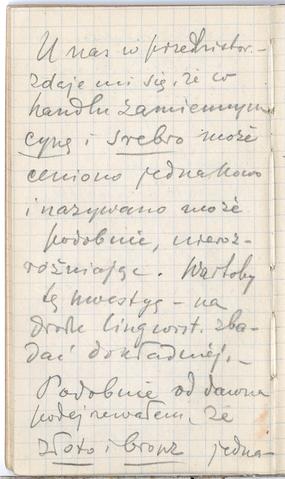 U nas w przedhistor. –
zdaje mi się, że w
handlu zamiennym
cynę i srebro może
ceniono jednakowo
i nazywano może
podobnie, nieroz-
różniając. Wartoby
tę kwestyę – na
drodze lingwist. zba-
dać dokładniej. –
Podobnie od dawna
podejrzewałem, że
złoto i bronz jedna-